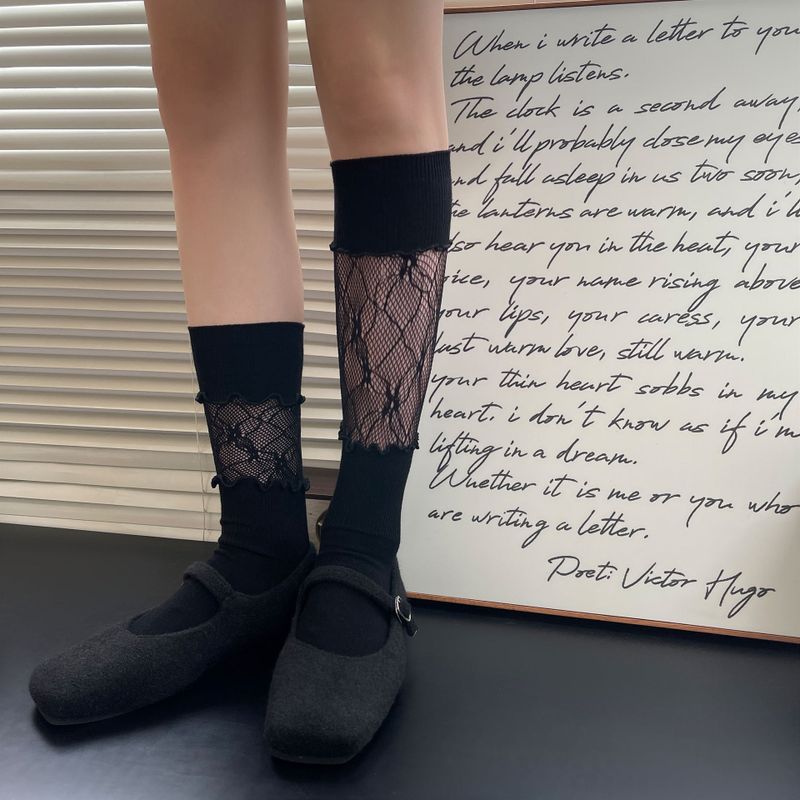 When i write a letter to you
the lamp listens.
The clock is a second away,
and i'll probably close my eyes
and fall asleep in us two soon,
the lanterns are warm, and i'll
also hear you in the heat, your
voice, your name rising above
your lips, your caress, your
last warm love, still warm.
your thin heart sobbs in my
heart. i don't know as if i'm
lifting in a dream.
Wuether it is me or you who
are writing a letter.
Poet: Victor Hugo